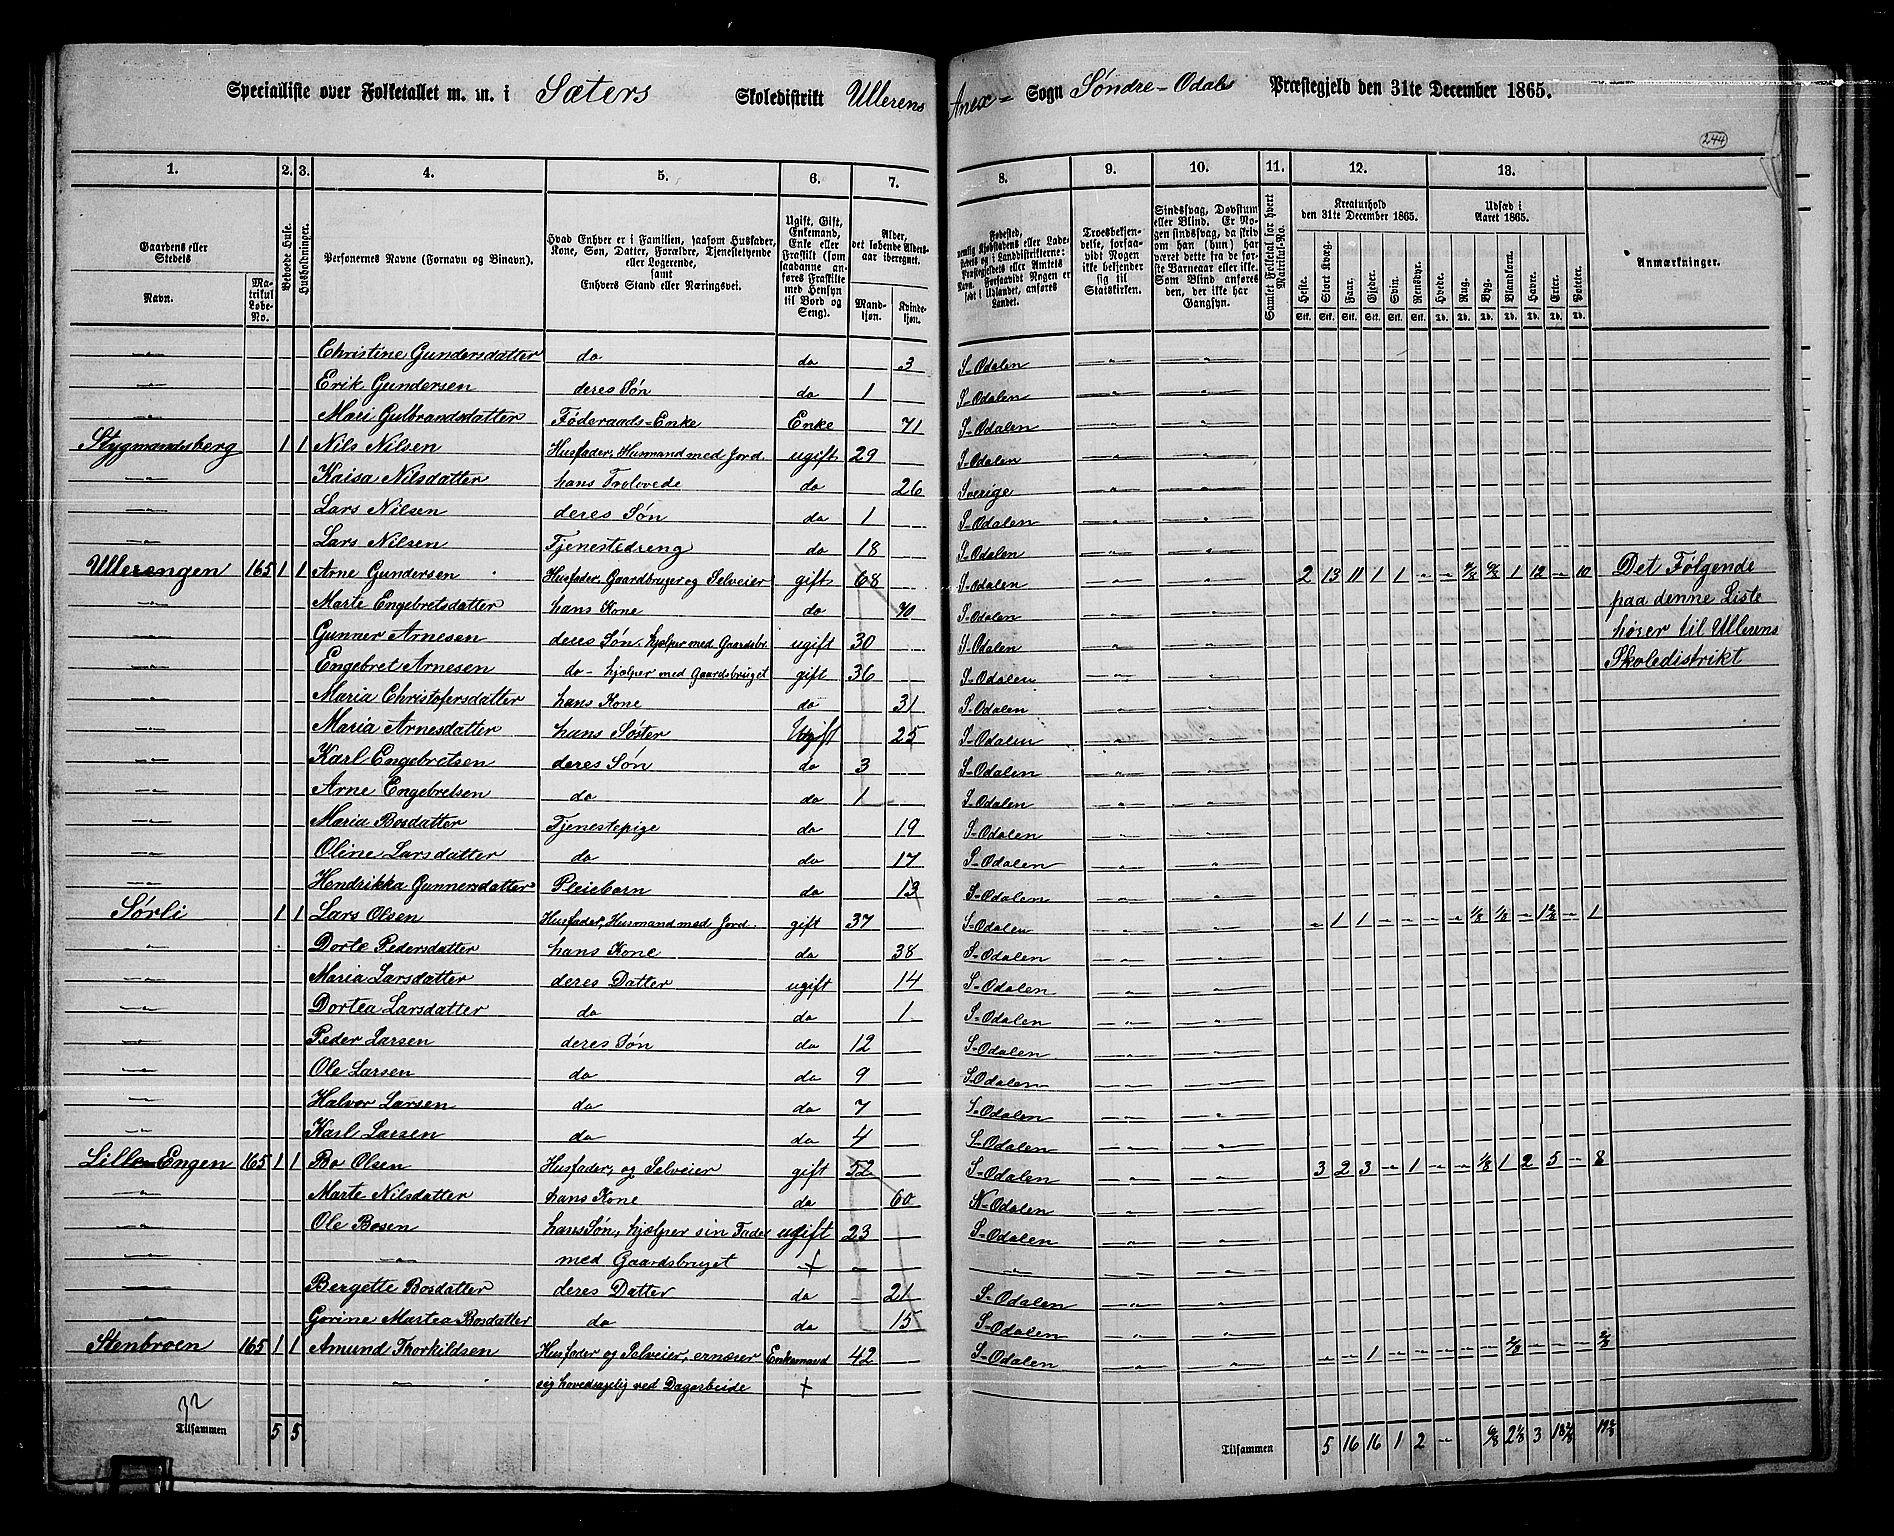 Specialliste over Folketallet m. m. i Sæters Skoledistrikt Ullerens Anex- Sogn Søndre-Odals Præstegjeld den 31te December 1865.
244
1. 2. 3. 4. 5. 6. 7. 8. 9. 10. 11. 12. 13.
Gaardens eller Stedets
Navn.
Matrikul Løbe-No.
Beboede Huse.
Husholdninger.
Personernes Navne (Fornavn og Binavn).
Hvad Enhver er i Familien, saasom Husfader, Kone, Søn, Datter, Forældre, Tjenestetyende eller Logerende, samt Enhvers Stand eller Næringsvei.
Ugift, Gift, Enkemand, Enke eller Fraskilt (som saadanne anføres Fraskilte med Hensyn til Bord og Seng).
Alder, det løbende Aldersaar iberegnet.
Mandkjøn. Kvindekjøn.
Troesbekjendelse, forsaavidt Nogen ikke bekjender sig til Statskirken.
Sindssvag, Døvstum eller Blind. Er Nogen sindssvag, da skriv om han (hun) har været dette fra første Barneaar eller ikke. Som Blind anføres den, der ikke har Gangsyn.
Samlet Folketal for hvert Matrikul-No.
Kreaturhold den 31te December 1865.
Heste. Stort Kvæg. Faar. Gjeder. Svin. Rensdyr.
Udsæd i Aaret 1865.
Hvede. Rug. Byg. Blandkorn. Havre. Erter. Poteter.
Anmærkninger.
Christine Gundersdatter do do 3 S-Odalen
Erik Gundersen deres Søn do 1 S-Odalen
Mari Gulbrandsdatter Føderaads-Enke Enke 71 S-Odalen
Stygmandsberg 1 1 Nils Nilsen Husfader, Husmand med Jord. ugift 29 S-Odalen
Kaisa Nilsdatter hans Trolovede do 26 Sverige
Lars Nilsen deres Søn do 1 S-Odalen
Lars Nilsen Tjenestedreng do 18 S-Odalen
Ullerengen 165 1 1 Arne Gundersen Husfader, Gaardbruger og Selveier gift 68 S-Odalen 2 13 11 1 1 1 12 10 Det Følgende
Marte Engebretsdatter hans Kone do 70 S-Odalen paa denne Liste
Gunner Arnesen deres Søn, hjælper med Gaardsbr. ugift 30 S-Odalen hører til Ullerens
Engebret Arnesen do - hjælper med Gaardsbruget gift 36 S-Odalen Skoledistrikt
Maria Christofersdatter hans Kone do 31 S-Odalen
Maria Arnesdatter hans Søster Ugift 25 S-Odalen
Karl Engebretsen deres Søn do 3 S-Odalen
Arne Engebretsen do do 1 S-Odalen
Maria Bosdatter Tjenestepige do 19 S-Odalen
Oline Larsdatter do do 17 S-Odalen
Hendrikka Gunnersdatter Pleiebarn do 13 S-Odalen
Sørli 1 1 Lars Olsen Husfader, Husmand med Jord. gift 37 S-Odalen 1 1 1
Dorte Pedersdatter hans Kone do 38 S-Odalen
Maria Larsdatter deres Datter ugift 14 S-Odalen
Dortea Larsdatter do do 1 S-Odalen
Peder Larsen deres Søn do 12 S-Odalen
Ole Larsen do do 9 S-Odalen
Halvor Larsen do do 7 S-Odalen
Karl Larsen do do 4 S-Odalen
Lille-Engen 165 1 1 Bo Olsen Husfader, og Selveier gift 52 S-Odalen 3 2 3 1 1/8 1 2 5 8
Marte Nilsdatter hans Kone do 60 N-Odalen
Ole Bosen hans Søn, hjælper sin Fader ugift 23 S-Odalen
med Gaardsbruget +
Bergette Bosdatter deres Datter do 21 S-Odalen
Gorine Martea Bosdatter do do 15 S-Odalen
Stenbroen 165 1 1 Amund Thorkildsen Husfader og Selveier, ernærer Enkemand 42 S-Odalen 1 2/8 2/8
sig hovedsagelig ved Dagarbeide +
32
Tilsammen 5 5 Tilsammen 5 16 16 1 2 6/8 2 1/8 3 18 2/8 19 2/8